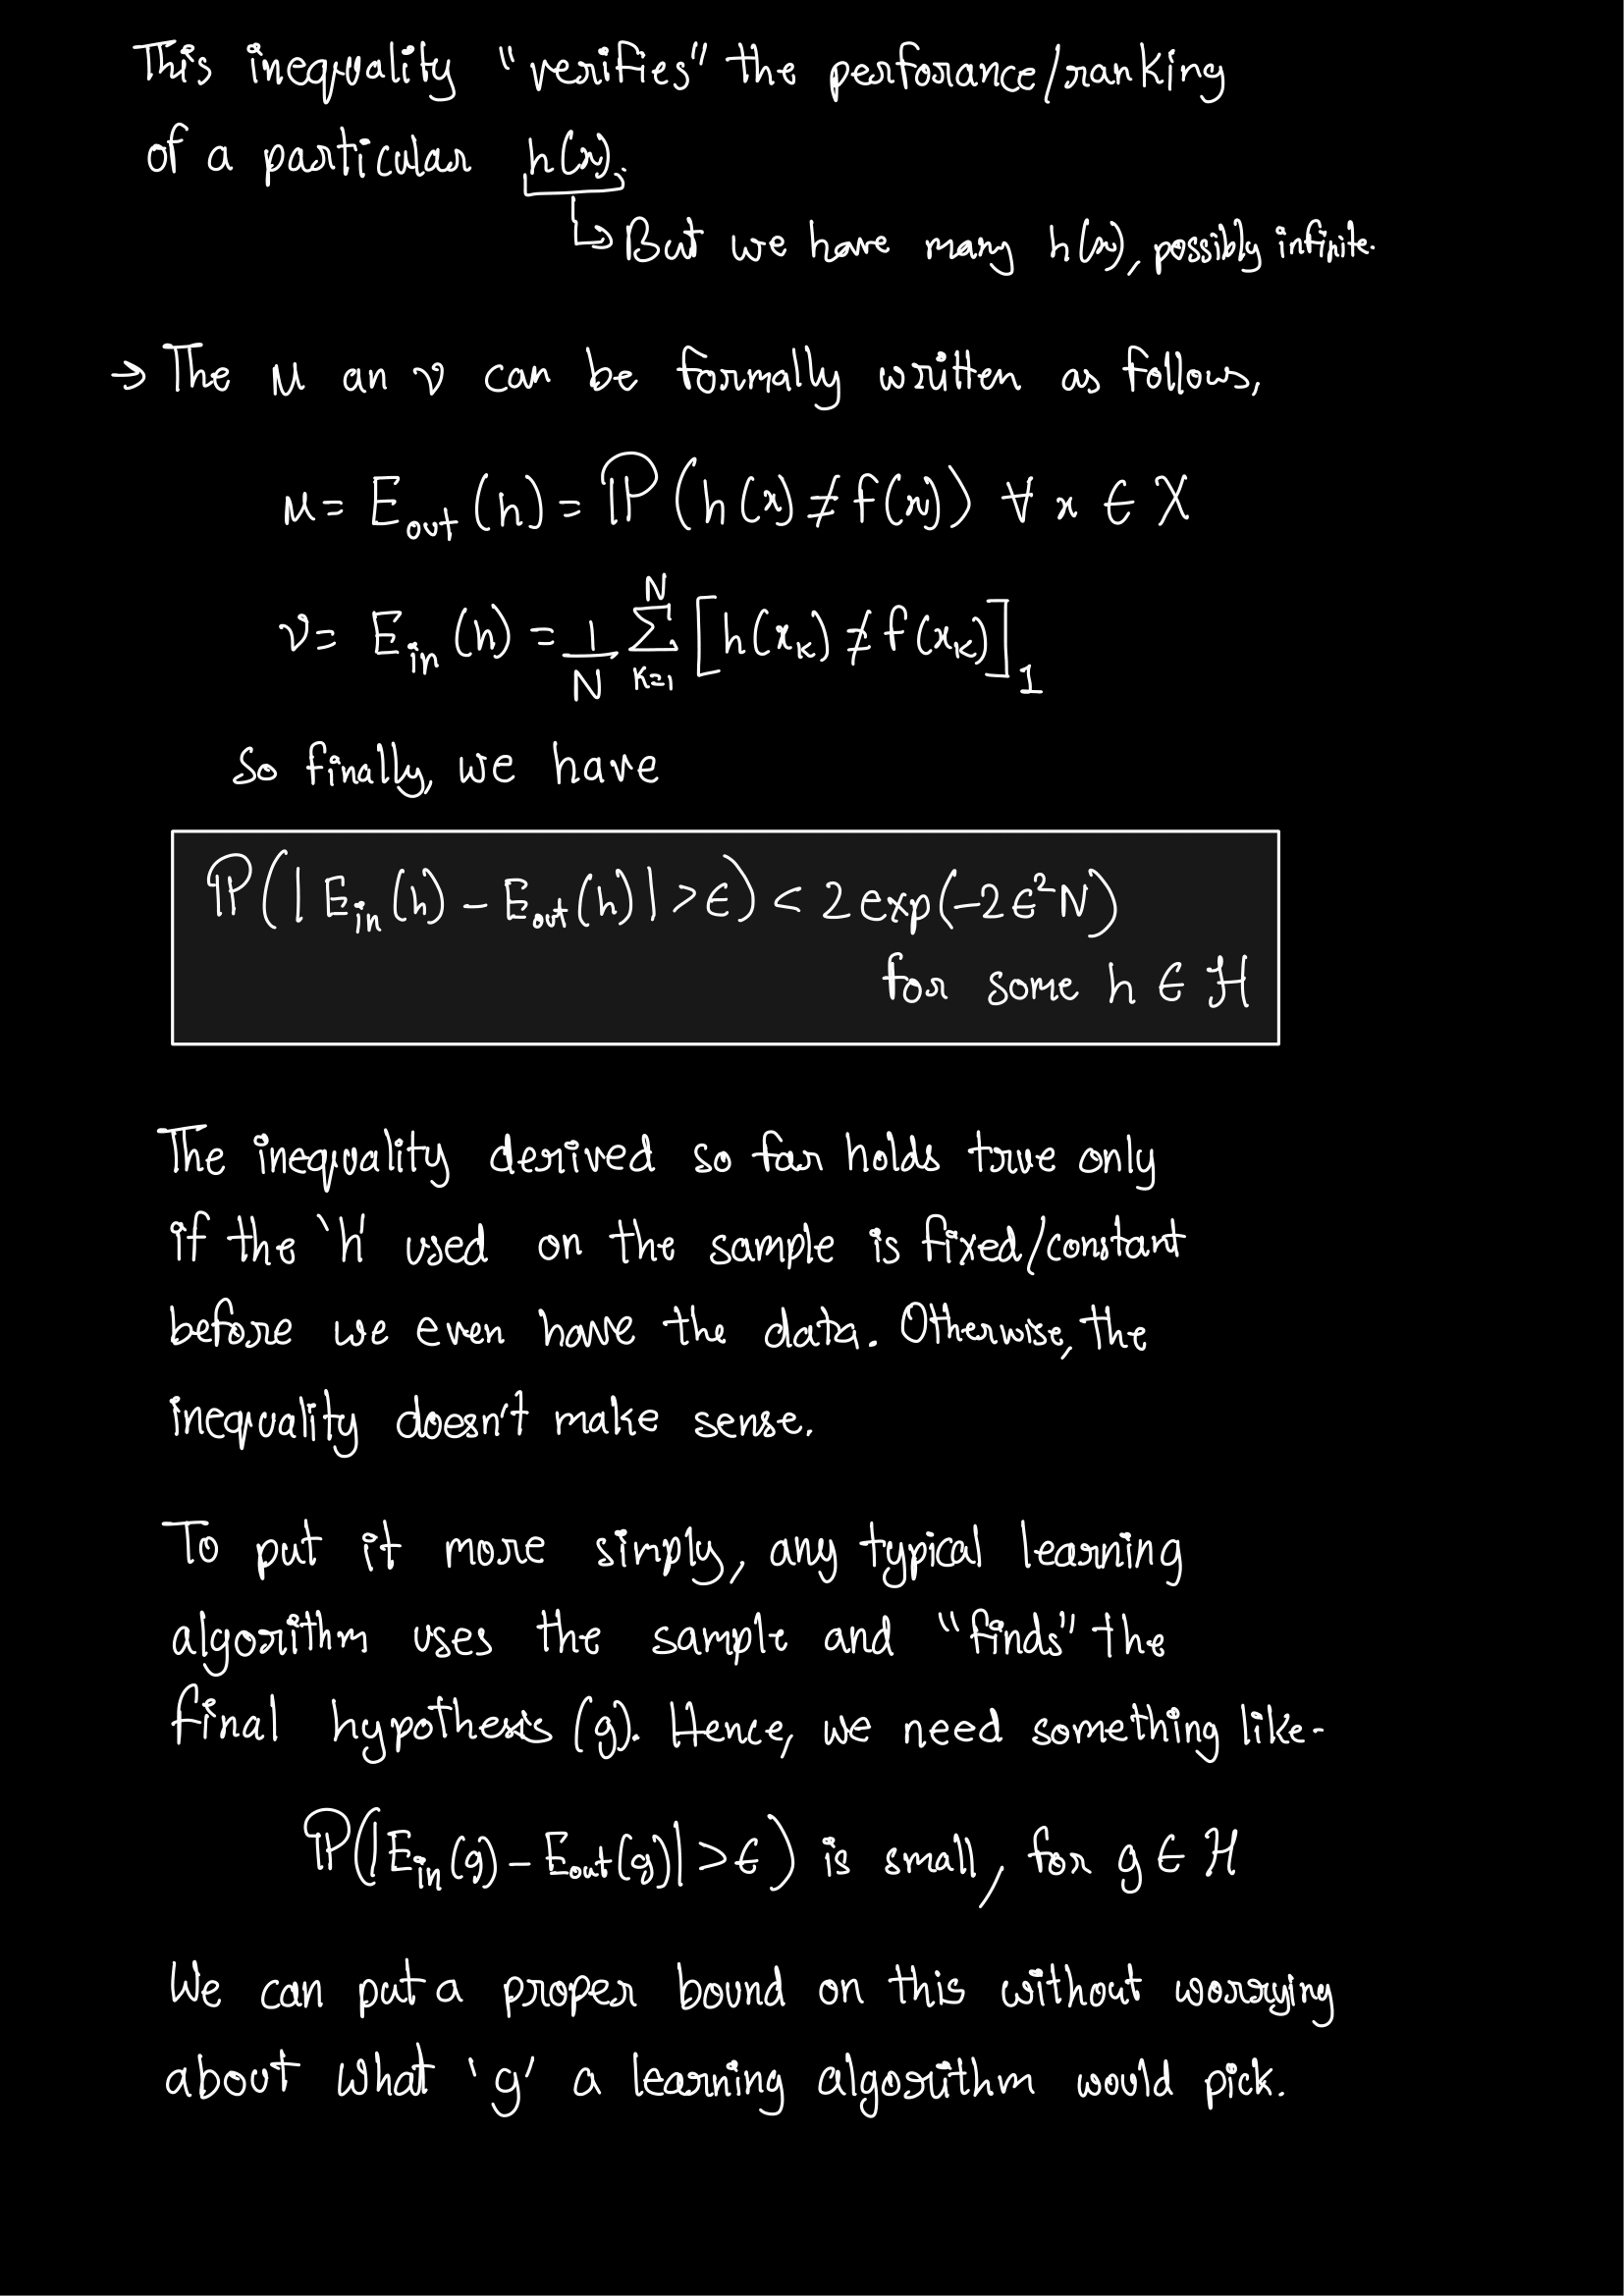 This inequality “verifies” the perforance/ranking
of a particular h(x).
↳ But we have many h(x), possibly infinite.
→ The μ an ν can be formally written as follows,
μ = E_out (h) = ℙ(h(x) ≠ f(x)) ∀ x ∈ X
ν = E_in (h) = 1/N ∑_{k=1}^{N} [h(x_k) ≠ f(x_k)]_1
So finally, we have
ℙ(|E_in(h) - E_out(h)| > ϵ) < 2 exp(-2ϵ²N)
for some h ∈ ℋ
The inequality derived so far holds true only
if the 'h' used on the sample is fixed/constant
before we even have the data. Otherwise, the
inequality doesn't make sense.
To put it more simply, any typical learning
algorithm uses the sample and “finds” the
final hypothesis (g). Hence, we need something like-
ℙ(|E_in(g) - E_out(g)| > ϵ) is small, for g ∈ ℋ
We can put a proper bound on this without worrying
about what 'g' a learning algorithm would pick.